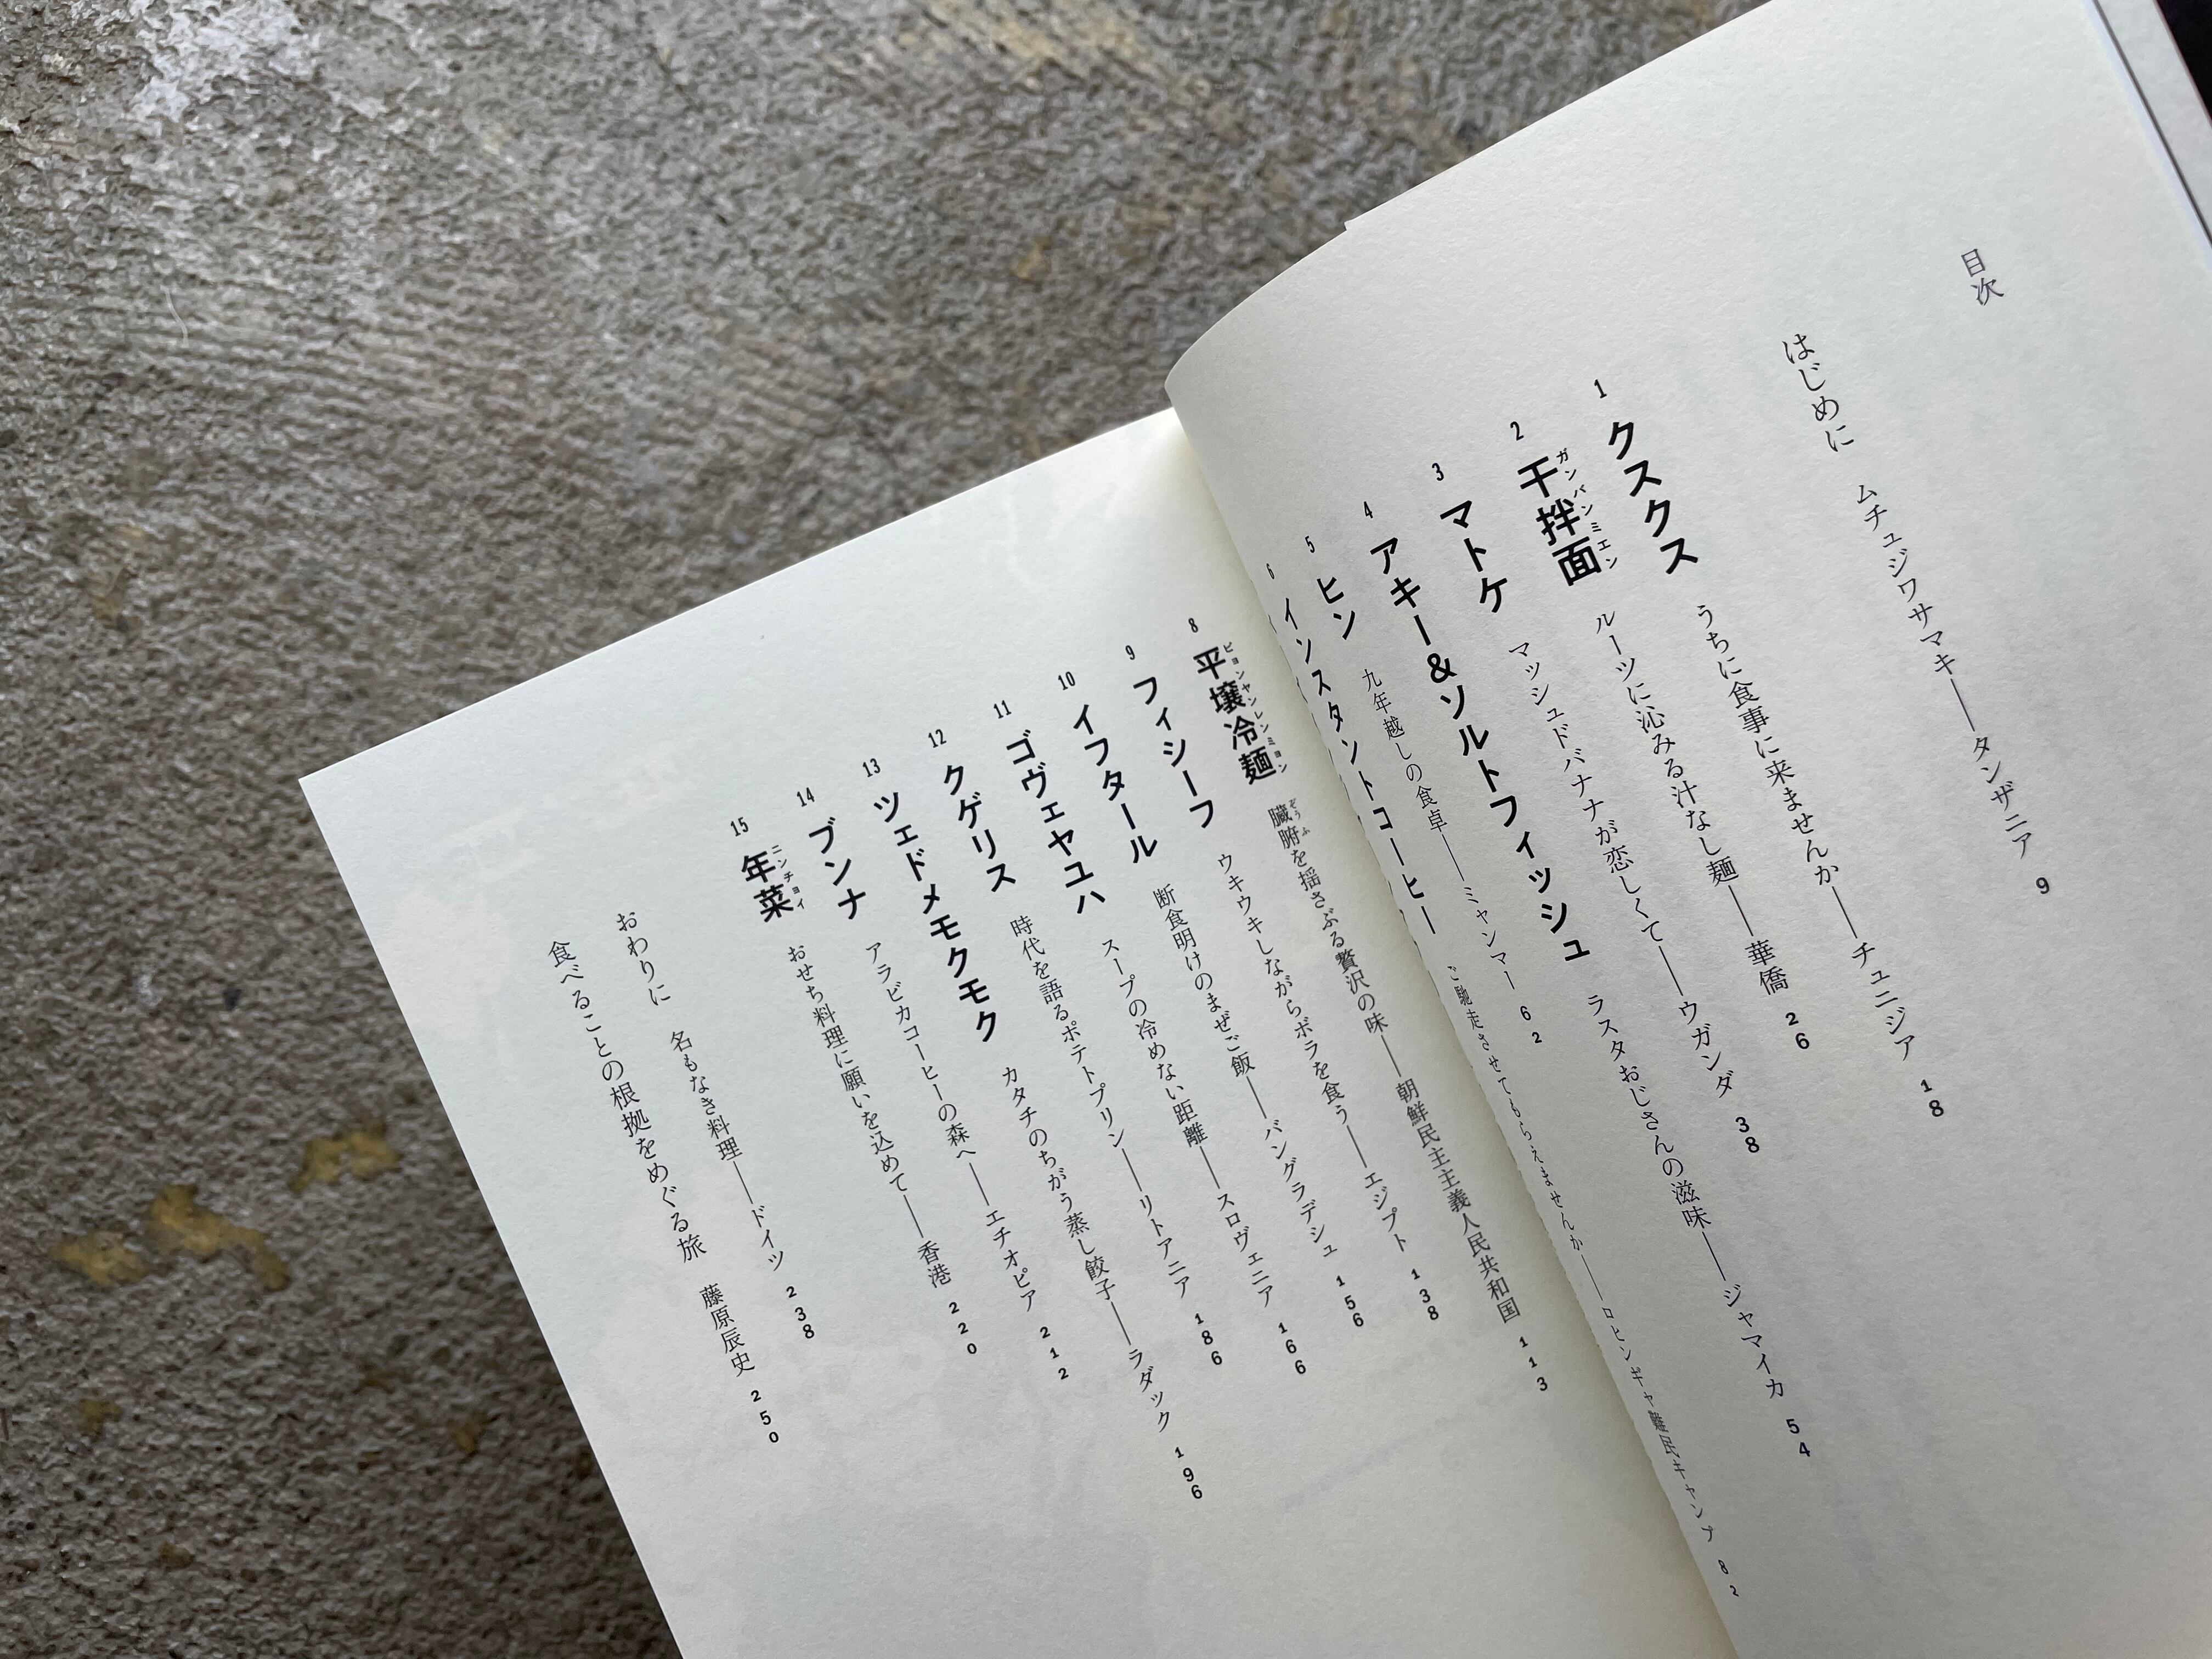 目次
はじめに　ムチュジワサマキ――タンザニア　9
1　クスクス　うちに食事に来ませんか――チュニジア　18
2　干拌面　ルーツに沁みる汁なし麺――華僑　26
ガンバンミエン
3　マトケ　マッシュドバナナが恋しくて――ウガンダ　38
4　アキー&ソルトフィッシュ　ラスタおじさんの滋味――ジャマイカ　54
5　ヒン　九年越しの食卓――ミャンマー　62
6　インスタントコーヒー　ご馳走させてもらえませんか――ロヒンギャ難民キャンプ　82
8　平壌冷麺　臓腑を揺さぶる贅沢の味――朝鮮民主主義人民共和国　113
ピョンヤンレンミョン　ぞうふ
9　フィシーフ　ウキウキしながらボラを食う――エジプト　138
10　イフタール　断食明けのまぜご飯――バングラデシュ　156
11　ゴヴェヤユハ　スープの冷めない距離――スロヴェニア　166
12　クゲリス　時代を語るポテトプリン――リトアニア　186
13　ツェドメモクモク　カタチのちがう蒸し餃子――ラダック　196
14　ブンナ　アラビカコーヒーの森へ――エチオピア　212
15　年菜　おせち料理に願いを込めて――香港　220
ニンチョイ
おわりに　名もなき料理――ドイツ　238
食べることの根拠をめぐる旅　藤原辰史　250